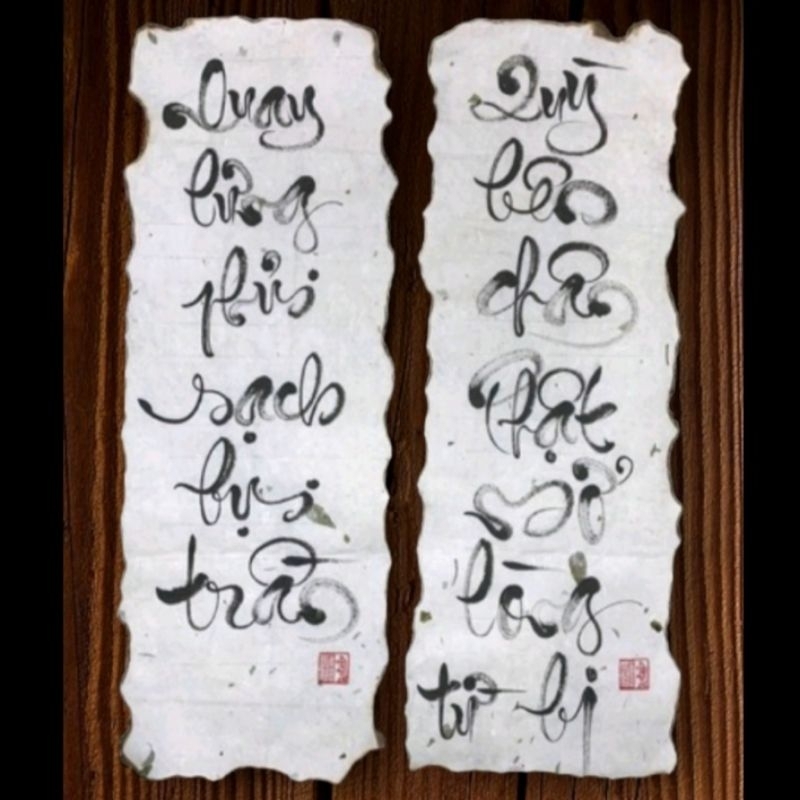 Quay
lưng
phủi
sạch
bụi
trần
Quỳ
bên
chân
Phật
mở
lòng
từ bi